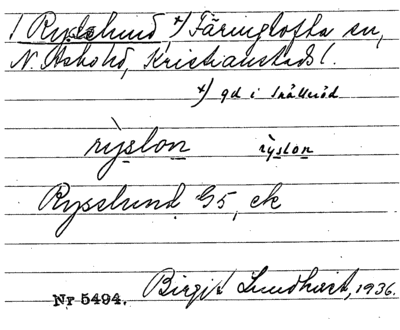 1 Rysslund, x) Färingtofta sn,
N. Åsbohd, Kristianstads l.
x) gd i Snälleröd
ry̆slon rỳslon
Rysslund G5, ek
Birgit Lundkvist, 1936.
Nr 5494.